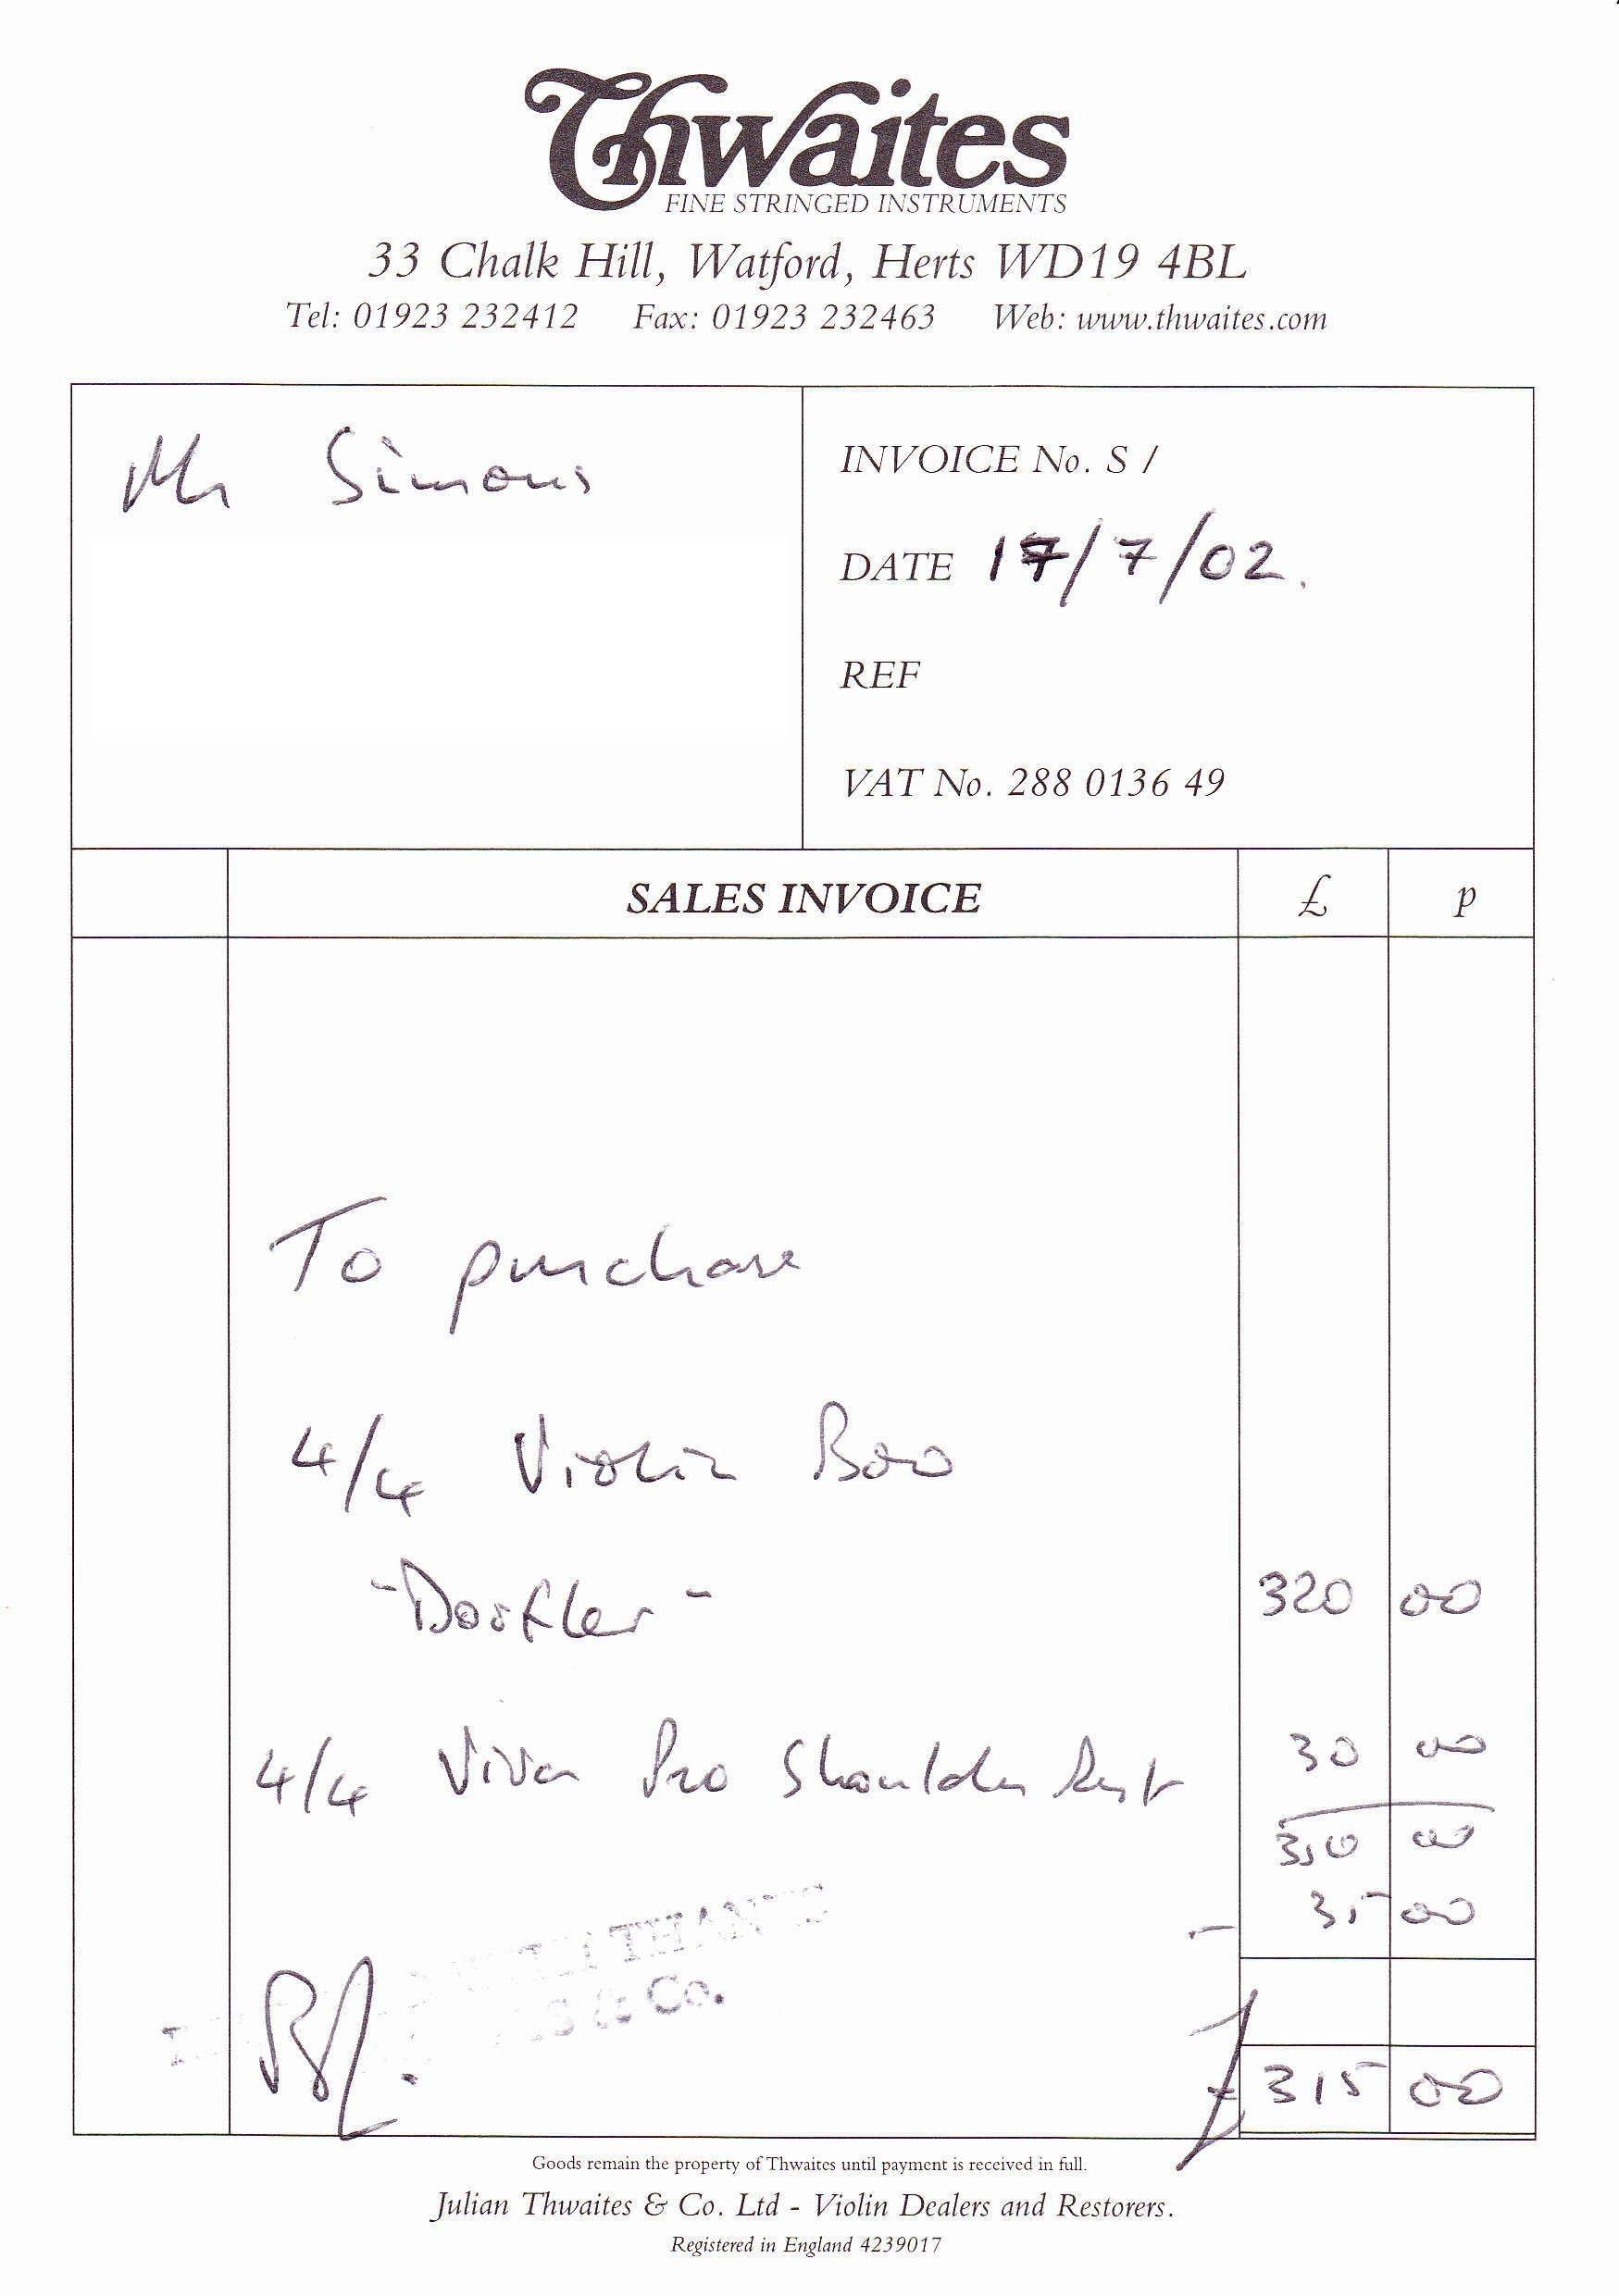 Thwaites
FINE STRINGED INSTRUMENTS
33 Chalk Hill, Watford, Herts WD19 4BL
Tel: 01923 232412 Fax: 01923 232463 Web: www.thwaites.com
Mr Simons
INVOICE No. S /
DATE 17/7/02.
REF
VAT No. 288 0136 49
SALES INVOICE £ p
To purchase
4/4 Violin Bow
"Dorfler" 320 00
4/4 Viva Pro Shoulder Rest 30 00
350 00
- 35 00
THANKS
& Co.
£ 315 00
Goods remain the property of Thwaites until payment is received in full.
Julian Thwaites & Co. Ltd - Violin Dealers and Restorers.
Registered in England 4239017